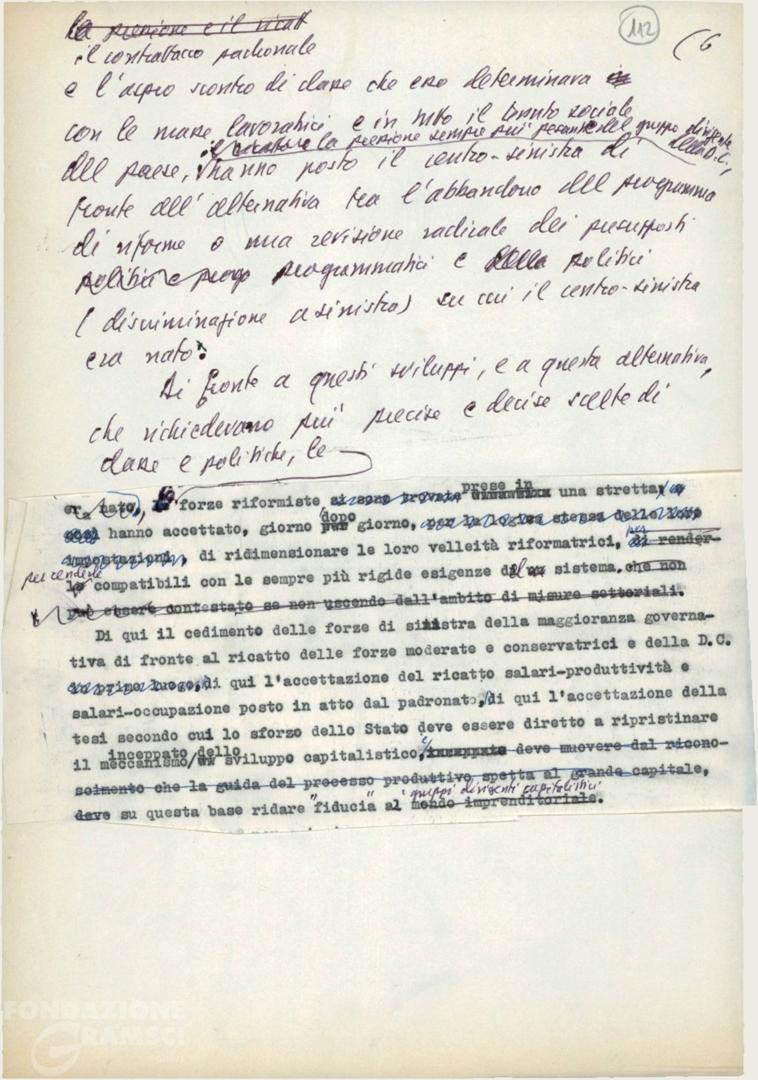 112
(6
la pressione e il ricatt
il contrattacco padronale
e l'aspro scontro di classe che esso determinava in
con le masse lavoratrici e in tutto il tessuto sociale
la pressione sempre più pesante del gruppo dirigente della D.C.,
del paese, hanno posto il centro-sinistra di
fronte all'alternativa tra l'abbandono del programma
di riforme o una revisione radicale dei presupposti
politici e prog programmatici e della politici
(discriminazione a sinistra) su cui il centro-sinistra
era nato.
Di fronte a questi sviluppi, e a questa alternativa,
che richiedevano più precise e decise scelte di
classe e politiche, le
prese in
era nato, le forze riformiste si sono trovate una stretta, e
dopo
così hanno accettato, giorno per giorno, per la logica stessa delle loro
per
impostazioni, di ridimensionare le loro velleità riformatrici, di render-
per renderle
le compatibili con le sempre più rigide esigenze del sistema. che non
può essere contestato se non uscendo dall'ambito di misure settoriali.
Di qui il cedimento delle forze di sinistra della maggioranza governa-
tiva di fronte al ricatto delle forze moderate e conservatrici e della D.C.
in primo luogo, di qui l'accettazione del ricatto salari-produttività e
salari-occupazione posto in atto dal padronato, di qui l'accettazione della
tesi secondo cui lo sforzo dello Stato deve essere diretto a ripristinare
inceppato dello
il meccanismo/ sviluppo capitalistico, e deve muovere dal ricono-
scimento che la guida del processo produttivo spetta al grande capitale,
gruppi dirigenti capitalistici
deve su questa base ridare "fiducia" al mondo imprenditoriale.
FONDAZIONE
GRAMSCI